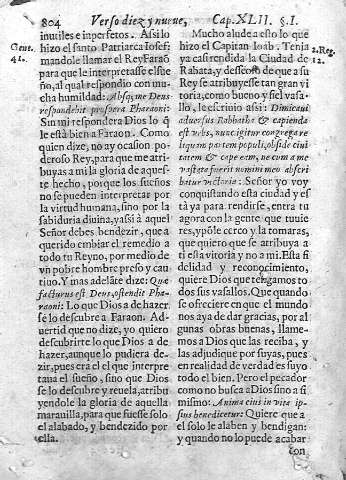 804 Verso diez y nueve, Cap. XLII. §. I.
Gene.
41.
inutiles e inperfetos. Assi lo
hizo el santo Patriarca Iosef:
mandole llamar el Rey Faraõ
para que le interpretasse el sue
ño, al qual respondio con mu
cha humildad: Absq̃ me Deus
respondebit prospera Pharaoni:
Sin mi respondera Dios lo q̃
le està bien a Faraon. Como
quien dize, no ay ocasion po-
deroso Rey, para que me atri-
buyas a mi la gloria de aques-
te hecho, porque los sueños
no se pueden interpretar por
la virtud humana, sino por la
sabiduria diuina, y assi à aquel
Señor debes bendezir, que a
querido embiar el remedio a
todo tu Reyno, por medio de
vn pobre hombre preso y cau
tiuo. Y mas adelãte dize: Quæ
facturus est Deus, ostendit Pha-
raoni: Lo que Dios a de hazer,
se lo descubre a Faraon. Ad-
uertid que no dize, yo quiero
descubrirte lo que Dios a de
hazer, aunque lo pudiera de-
zir, pues era el el que interpre
taua el sueño, sino que Dios
se lo descubre y reuela, atribu
yendole la gloria de aquella
marauilla, para que fuesse solo
el alabado, y bendezido por
ella.
Mucho alude a esto lo que
hizo el Capitan Ioab. Tenia
ya casi rendida la Ciudad de
Rabata, y desseoso de que a su
Rey se atribuyesse tan gran vi
toria, como bueno y fiel vasa-
llo, le escriuio assi: Dimicaui
aduersus Rabbath & capienda
est vrbs, nunc igitur congrega re
liquam partem populi, obside ciui
tatem & cape eam, ne cum a me
vastata fuerit nomini meo abscri
batur victoria: Señor yo voy
conquistando esta ciudad y es
tà ya para rendirse, entra tu
agora con la gente que tuuie
res, y põle cerco y la tomaras,
que quiero que se atribuya a
ti esta vitoria y no a mi. Esta fi
delidad y reconocimiento,
quiere Dios que tẽgamos to
dos sus vasallos. Que quando
se ofreciere en que el mundo
nos aya de dar gracias, por al
gunas obras buenas, llame-
mos a Dios que las reciba, y
las adjudique por suyas, pues
en realidad de verdad es suyo
todo el bien. Pero el pecador
como no busca a Dios sino a si
mismo: Anima eius in vita ip-
sius benedicetur: Quiere que a
el solo le alaben y bendigan:
y quando no lo puede acabar
con
2. Reg.
12.